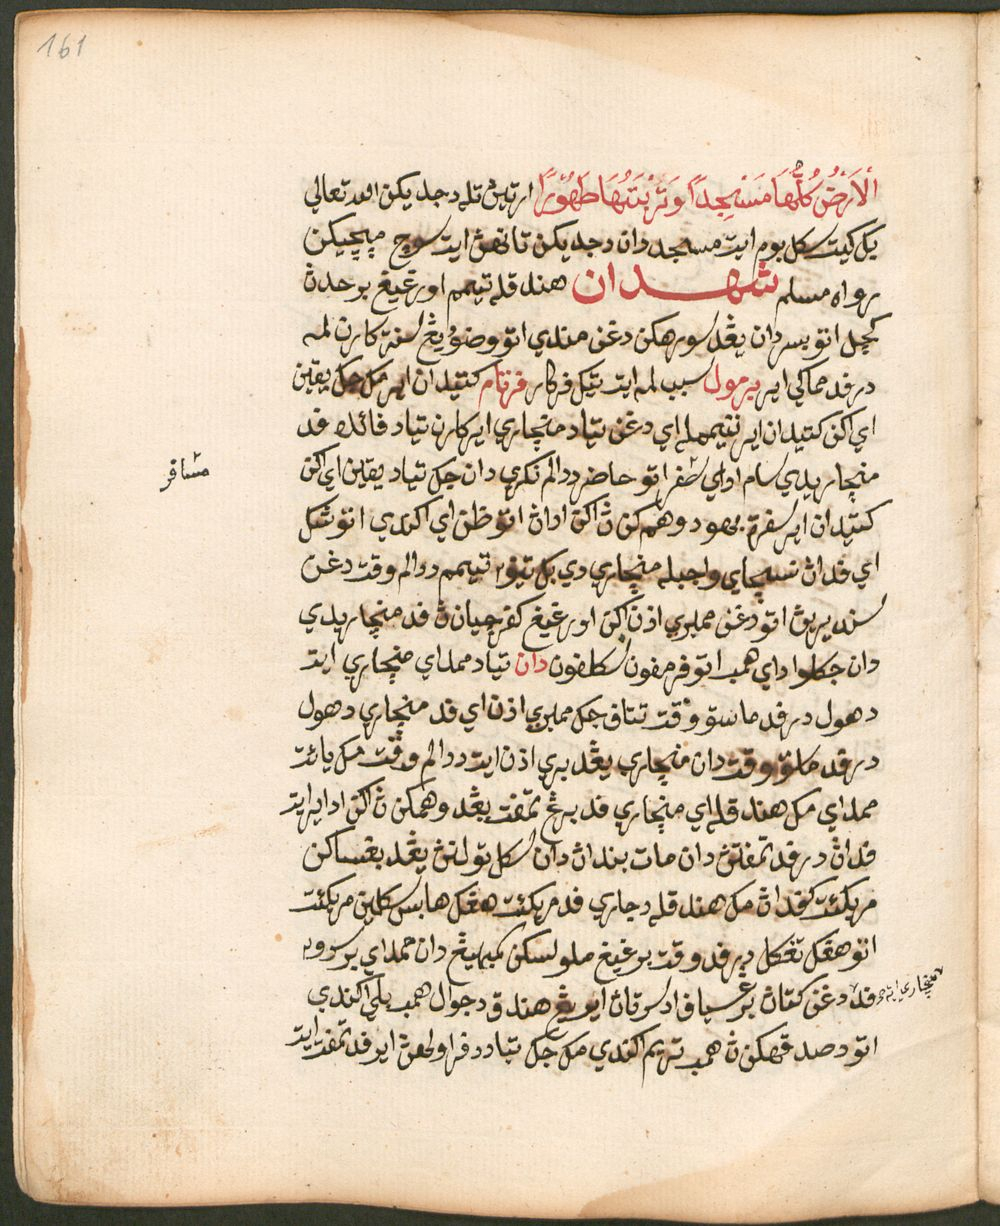 161
الْاَرْضُ كُلُّهَا مَسْجِدًا وَتُرْبَتُهَا طَهُوْرًا ارتيڽ تله دجديكن الله تعالى
بݢي كيت سكل بوم ايت مسجد دان دجديكن تانهڽ ايت سوچ مڽچيكن
رواه مسلم شهدان هندقله تيمم اورڠ يڠ برحدث
كچل اتو بسر دان يڠد سورهكن دڠن مندي اتو وضوء يڠ سنة كارن لمه
درفد مماكي اير برمول سبب لمه ايت تيك فركار فرتام كتيدان اير مك جك يقين
اي اكن كتيدان اير تيممله اي دڠن تياد منچاري اير كارن تياد فائده فد
منچاريدي سام ادا اي مسافر اتو حاضر ددالم نكري دان جك تياد يقين اي اكن
كتيدان اير سفرة بهود وهمكن اكندي اداڽ اتو ظن اي اكندي اتو شك
اي فداڽ نسچاي واجبله منچاري دي بݢ تيڤ٢ تيمم ددالم وقت دڠن
سنديرين اتو دڠن ممبري اذن اكن اورڠ يڠ كفرچيان فد منچاريدي
دان جكلوا دا اي همب اتو فرمفون سكلفون دان تياد ممداي منچاري ايت
دهول درفد ماسق وقت تتاف جك ممبري اذن اي فد منچاري دهول
درفد ماسق وقت دان منچاري يڠد بري اذن ايت ددالم وقت مك يائت
ممداي مك هندقله اي منچاري فد برڠ تمفت يڠد وهمكن اكن ادا اير ايت
فداڽ درفد تمفتڽ دان مات بنداڽ دان سكل تولنڽ يڠد بڠساكن
مريكئت كفداڽ مك هندقله دچاري فد مريكئت هڠݢ هابس سكلين مريكئت
اتو هڠݢ تڠݢل درفد وقت برڠ يڠ ملولسكن سمبهيڠ دان ممداي برسرو٢
منچاري ايت
فد دڠن كتاڽ برڠسياف ادا سرتاڽ اير يڠ هندق دجوال همب بلي اكندي
اتو دصدقهكن همب تريم اكندي مك جك تياد دفراولهڽ اير فد تمفت ايت
مسافر